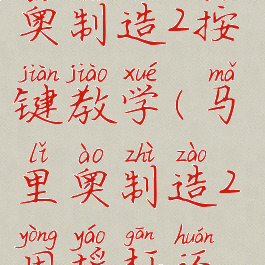 奥制造2按
jiàn jiào xué mǎ
键教学(马
lǐ ào zhì zào
里奥制造2
yòng yáo gān huán
用摇杆还